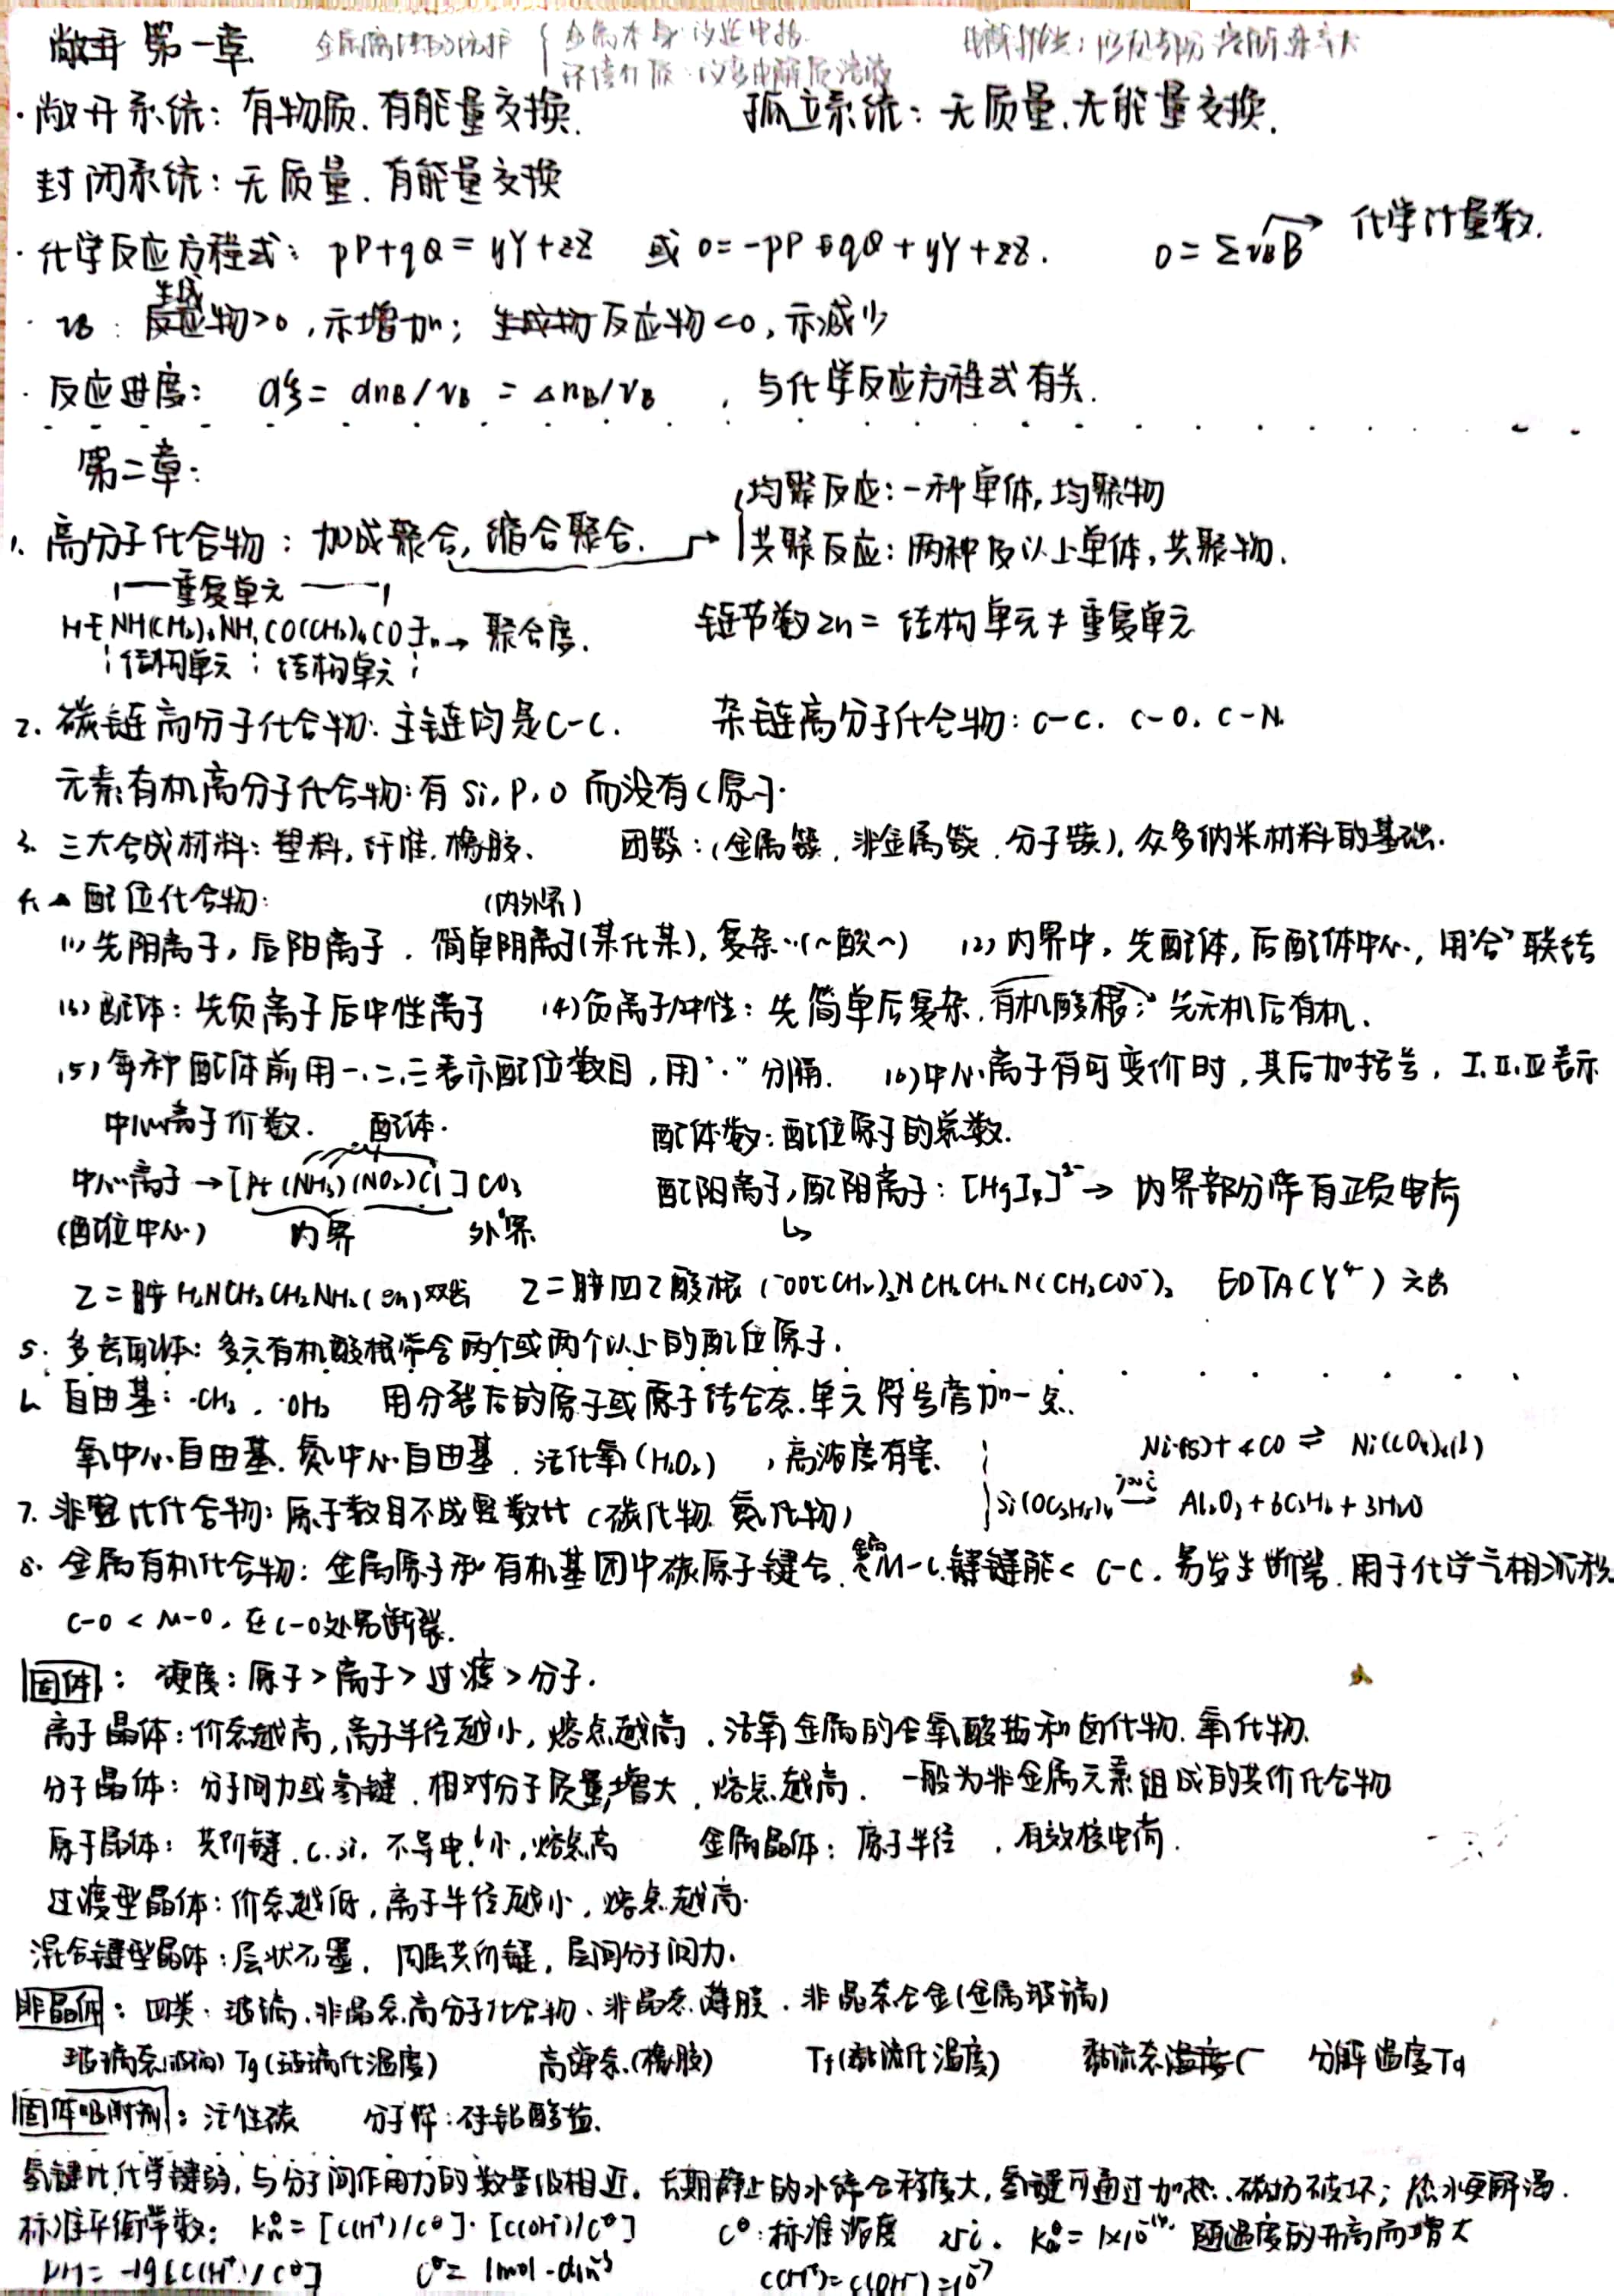 第一章
金属腐蚀的防护 { 金属本身
· 敞开系统：有物质.有能量交换. 孤立系统：无质量.无能量交换.
封闭系统：无质量.有能量交换
· 化学反应方程式：pP+qQ=yY+zZ 或 0=-pP-qQ+yY+zZ. 0=ΣνBB → 化学计量数.
· νB：生成物>0，示增加；反应物<0，示减少
· 反应进度：dξ=dnB/νB=ΔnB/νB ，与化学反应方程式有关.
第二章：
均聚反应：一种单体，均聚物
1. 高分子化合物：加成聚合，缩合聚合. → 共聚反应：两种及以上单体，共聚物.
重复单元
H[NH(CH₂)₆NH CO(CH₂)₄CO]n → 聚合度. 链节数2n=结构单元≠重复单元
结构单元 结构单元
2. 碳链高分子化合物：主链均是C-C. 杂链高分子化合物：C-C. C-O. C-N.
元素有机高分子化合物：有Si,P,O 而没有C原子.
3. 三大合成材料：塑料，纤维.橡胶. 团簇：(金属簇.非金属簇.分子簇)，众多纳米材料的基础.
4. 配位化合物： (内外界)
(1) 先阴离子，后阳离子.简单阴离子(某化某)，复杂…(~酸~) (2) 内界中，先配体，后配体中心，用"合"联结
(3) 配体：先负离子后中性离子 (4) 负离子/中性：先简单后复杂.有机酸根；先无机后有机.
(5) 每种配体前用一.二.三表示配位数目，用"·"分隔. (6) 中心离子有可变价时，其后加括号，I.II.III表示
中心离子价数. 配体. 配体数：配位原子的总数.
中心离子→[Pt(NH₃)(NO₂)Cl]CO₃ 配阳离子，配阴离子：[HgI₄]²⁻→ 内界部分带有正负电荷
(配位中心) 内界 外界
乙二胺 H₂NCH₂CH₂NH₂(en)双齿 乙二胺四乙酸根 (⁻OOCCH₂)₂NCH₂CH₂N(CH₂COO⁻)₂ EDTA(Y⁴⁻) 六齿
5. 多齿配体：多元有机酸根常含两个或两个以上的配位原子.
6. 自由基：·CH₃. ·OH 用分裂后的原子或原子结合态.单元符号旁加一点.
氧中心自由基.氮中心自由基.活化氧(H₂O₂) ，高浓度有害. Ni(s)+4CO⇌Ni(CO)₄(l)
7. 非整比化合物：原子数目不成整数比(碳化物.氮化物) Al₂O₃+6C₃H₆+3H₂O
8. 金属有机化合物：金属原子和有机基团中碳原子键合. M-C 键键能<C-C.易发生断裂.用于化学气相沉积
C-O<M-O，在C-O处易断裂.
固体：硬度：原子>离子>过渡>分子.
离子晶体：价态越高，离子半径越小，熔点越高.活泼金属的含氧酸盐和卤化物.氧化物.
分子晶体：分子间力或氢键.相对分子质量增大，熔点越高. 一般为非金属元素组成的共价化合物
原子晶体：共价键.C.Si.不导电.小，熔点高 金属晶体：原子半径 ，有效核电荷.
过渡型晶体：价态越低，离子半径越小，熔点越高.
混合键型晶体：层状石墨，同层共价键，层间分子间力.
非晶体：四类：玻璃.非晶态高分子化合物、非晶态薄膜.非晶态合金(金属玻璃)
玻璃态(玻璃) Tg(玻璃化温度) 高弹态(橡胶) Tf(黏流化温度) 黏流态 分解温度Td
固体吸附剂：活性碳 分子筛：硅铝酸盐.
氢键比化学键弱，与分子间作用力的数量级相近.长期静止的水缔合程度大，氢键可通过加热、磁场破坏；热水更解渴.
标准平衡常数：Kw⊖=[c(H⁺)/c⊖]·[c(OH⁻)/c⊖] c⊖：标准浓度 25℃. Kw⊖=1×10⁻¹⁴. 随温度的升高而增大
pH=-lg[c(H⁺)/c⊖] c⊖=1mol·dm⁻³ c(H⁺)=c(OH⁻)=10⁻⁷